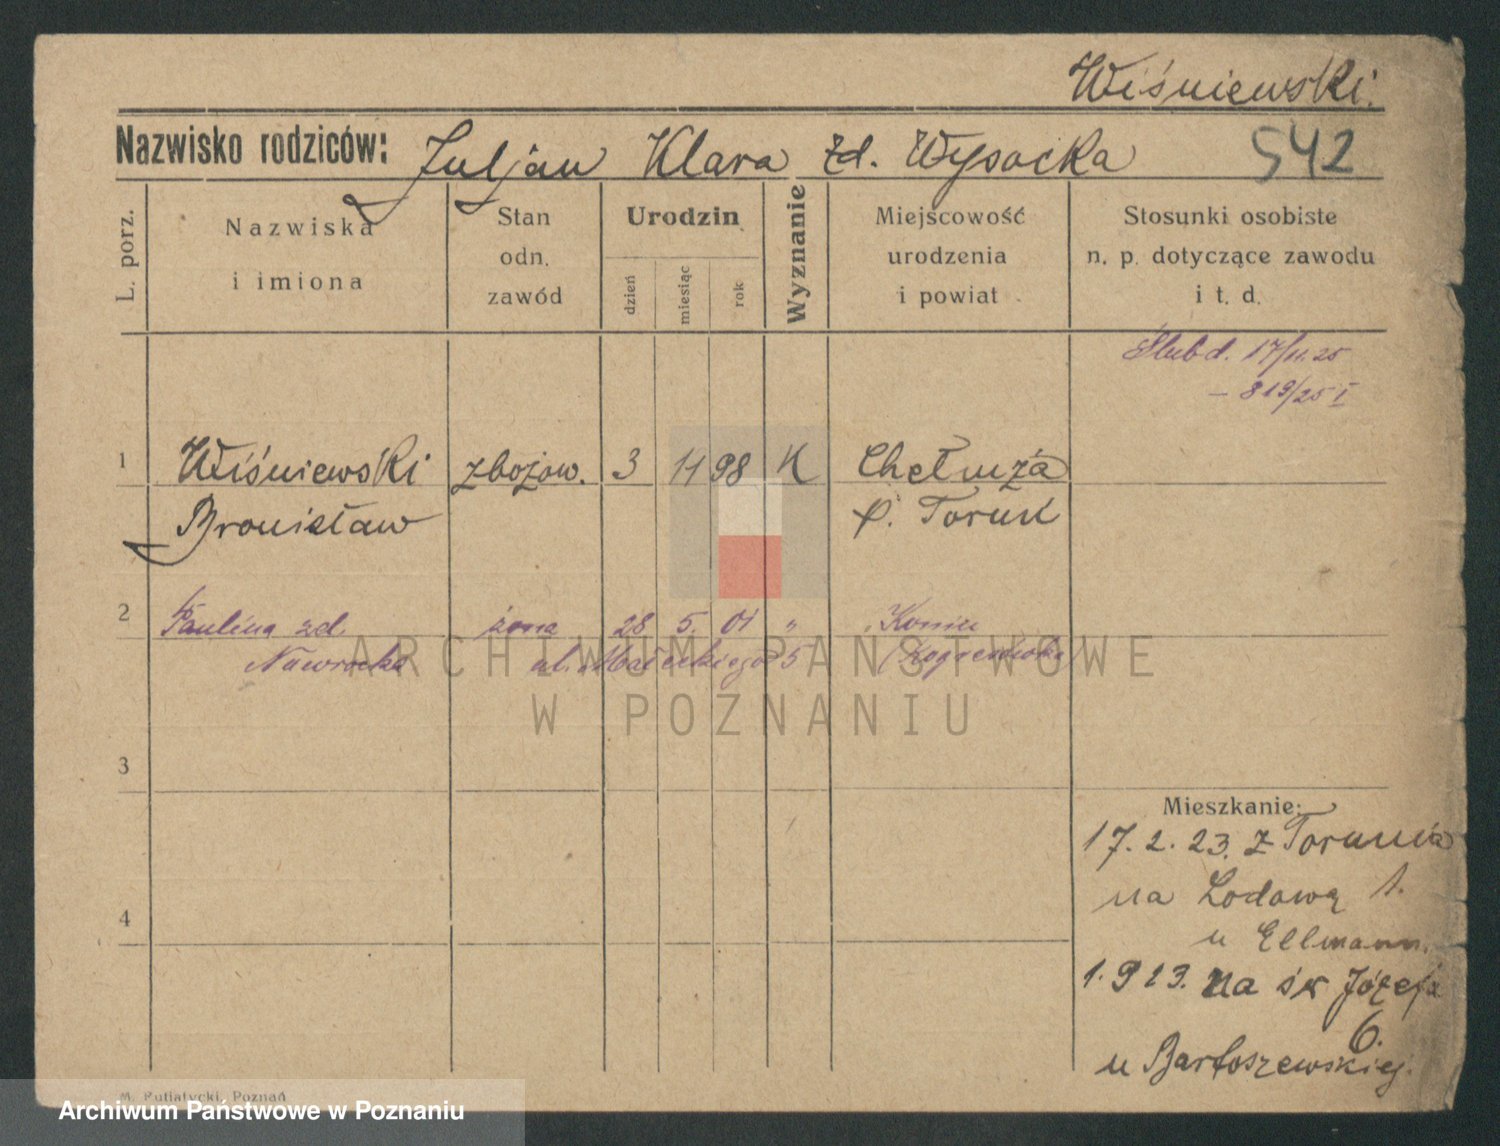 Wiśniewski.
Nazwisko rodziców: Juljan Klara zd. Wysocka 542
L. porz.
Nazwiska i imiona
Stan odn. zawód
Urodzin
dzień
miesiąc
rok
Wyznanie
Miejscowość urodzenia i powiat
Stosunki osobiste n. p. dotyczące zawodu i t. d.
Ślub d. 17/11.25
– 819/25 I
1 Wiśniewski zbożow. 3 11 98 K Chełmża
Bronisław p. Toruń
2 Paulina zd. żona 28 5. 01 "
Nawrocka ul. Małeckiego 5
3
Mieszkanie:
17. 2. 23. z Torunia
na Lodową 1.
4
u Ellmann.
1. 9 23. na św Józefa
6.
u Bartoszewskiej.
M. Putiatycki, Poznań
ARCHIWUM PAŃSTWOWE
W POZNANIU
Archiwum Państwowe w Poznaniu